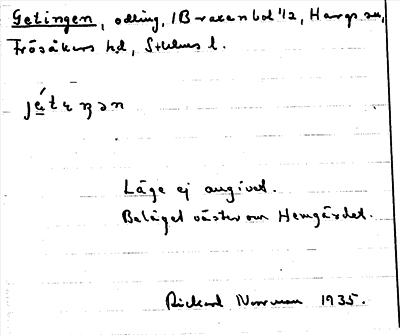 Getingen, odling, Braxenbol 1/2, Hargs sn,
Frösåkers hd, Sthlms l.
Läge ej angivet.
Beläget väster om Hemgärdet.
Rickard Norrman 1935.